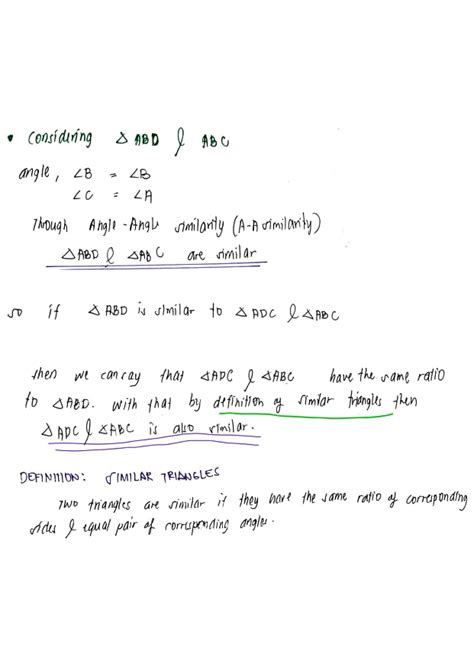 • Considering △ ABD & ABC
angle, ∠B = ∠B
∠C = ∠A
Through Angle-Angle similarity (A-A similarity)
△ABD & △ABC are similar
so if △ ABD is similar to △ ADC & △ABC
then we can say that △ADC & △ABC have the same ratio
to △ABD. With that by definition of similar triangles then
△ ADC & △ABC is also similar.
DEFINITION: SIMILAR TRIANGLES
Two triangles are similar if they have the same ratio of corresponding
sides & equal pair of corresponding angles.